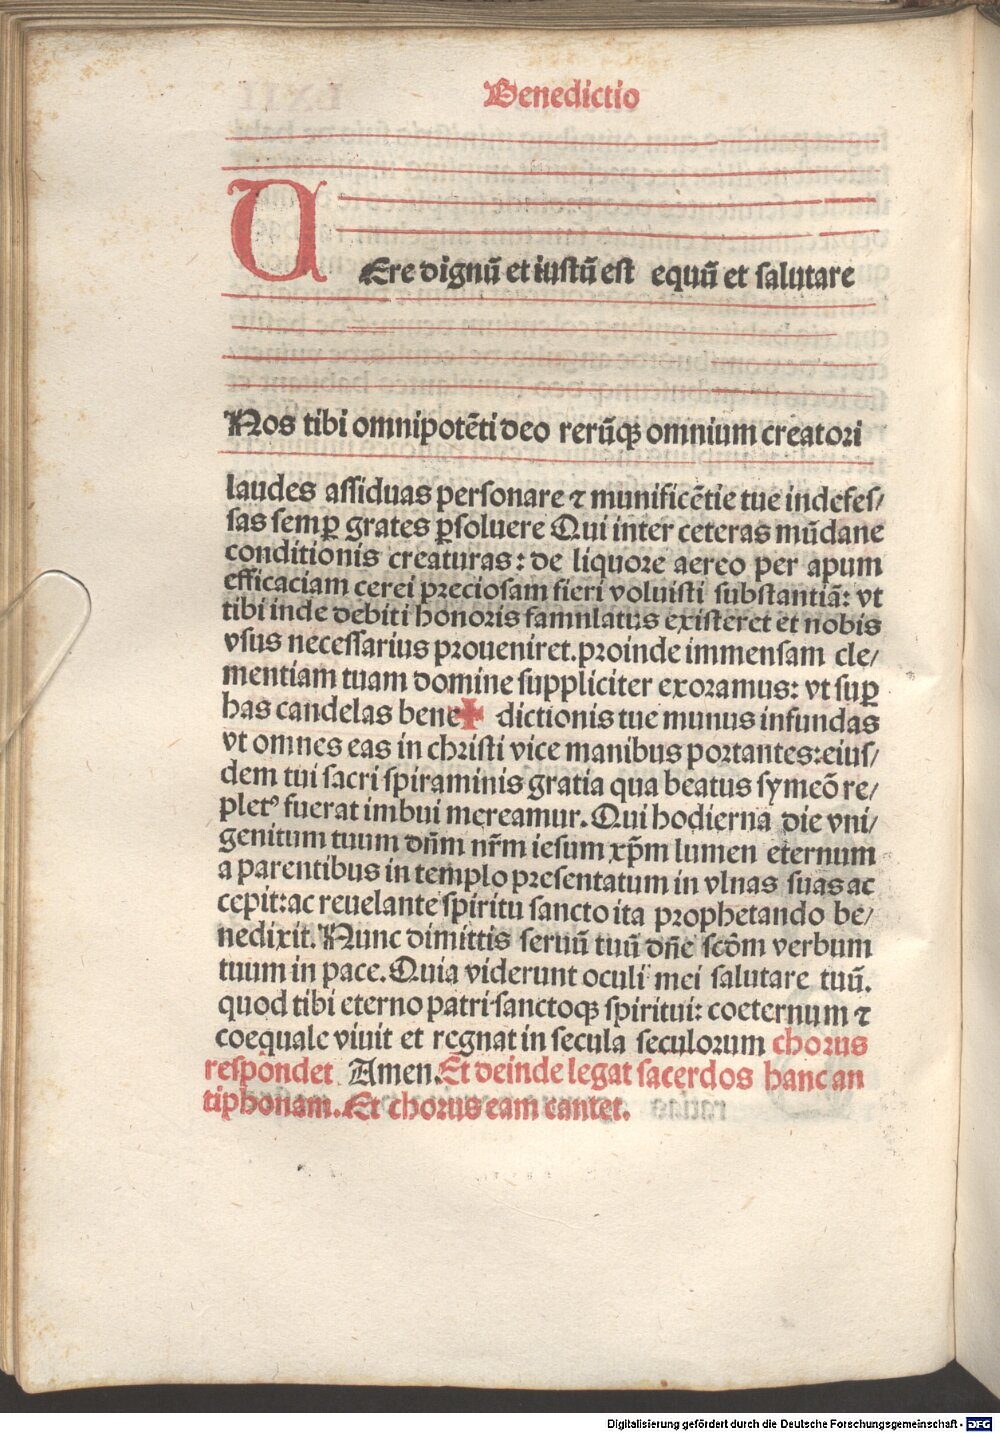 Benedictio
UEre dignū et iustū est equū et salutare
Nos tibi omnipotēti deo rerūqꝫ omnium creatori
laudes assiduas personare ⁊ munificētie tue indefes/
sas semꝑ grates ꝑsoluere Qui inter ceteras mūdane
conditionis creaturas: de liquore aereo per apum
efficaciam cerei preciosam fieri voluisti substantiā: vt
tibi inde debiti honoris famnlatus existeret et nobis
vsus necessarius proueniret. proinde immensam cle/
mentiam tuam domine suppliciter exoramus: vt suꝑ
has candelas bene✠ dictionis tue munus infundas
vt omnes eas in christi vice manibus portantes: eius/
dem tui sacri spiraminis gratia qua beatus symeō re/
pletꝰ fuerat imbui mereamur. Qui hodierna die vni/
genitum tuum dn̄m nr̄m iesum xp̄m lumen eternum
a parentibus in templo presentatum in vlnas suas ac
cepit: ac reuelante spiritu sancto ita prophetando be/
nedixit. Nunc dimittis seruū tuū dn̄e scd̄m verbum
tuum in pace. Quia viderunt oculi mei salutare tuū.
quod tibi eterno patri sanctoqꝫ spiritui: coeternum ⁊
coequale viuit et regnat in secula seculorum chorus
respondet Amen. Et deinde legat sacerdos hanc an
tiphonam. Et chorus eam cantet.
Digitalisierung gefördert durch die Deutsche Forschungsgemeinschaft - DFG